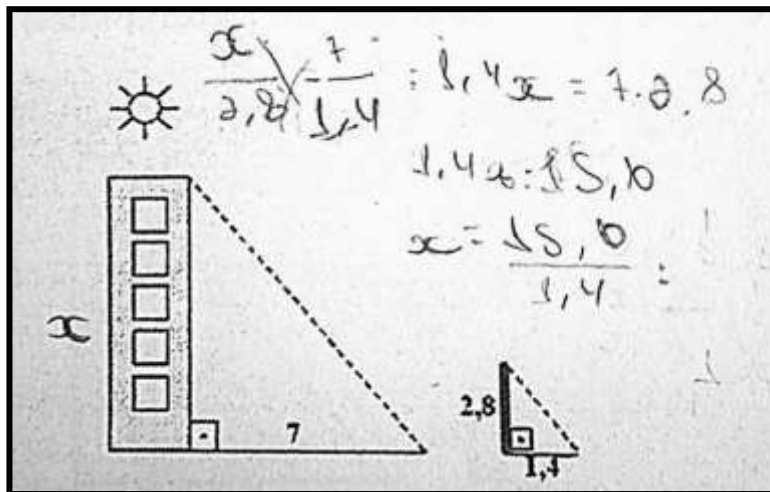 x/2,8 = 7/1,4 = 1,4x = 7.2,8
1,4x = 15,6
x = 15,6/1,4 =
x
7
2,8
1,4